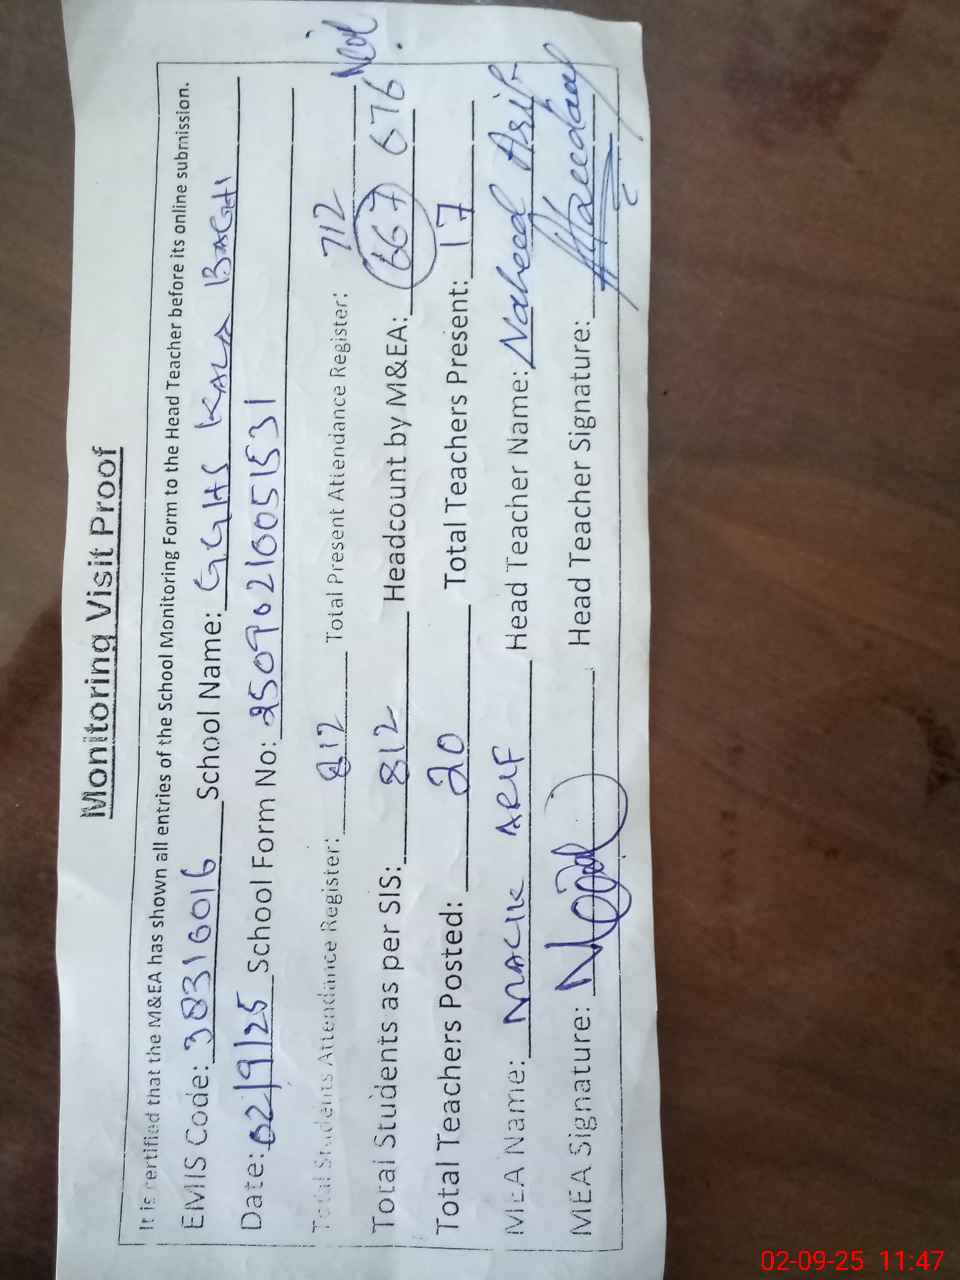 Monitoring Visit Proof
It is certified that the M&EA has shown all entries of the School Monitoring Form to the Head Teacher before its online submission.
EMIS Code: 38316016 School Name: GGHS KALA BAGH
Date: 02/9/25 School Form No: 25090210051531
Total Students Attendance Register: 812 Total Present Attendance Register: 712
Total Students as per SIS: 812 Headcount by M&EA: 667 676
Total Teachers Posted: 20 Total Teachers Present: 17
MEA Name: MALIK ARIF Head Teacher Name: Naheed Asif
MEA Signature: Head Teacher Signature:
02-09-25 11:47